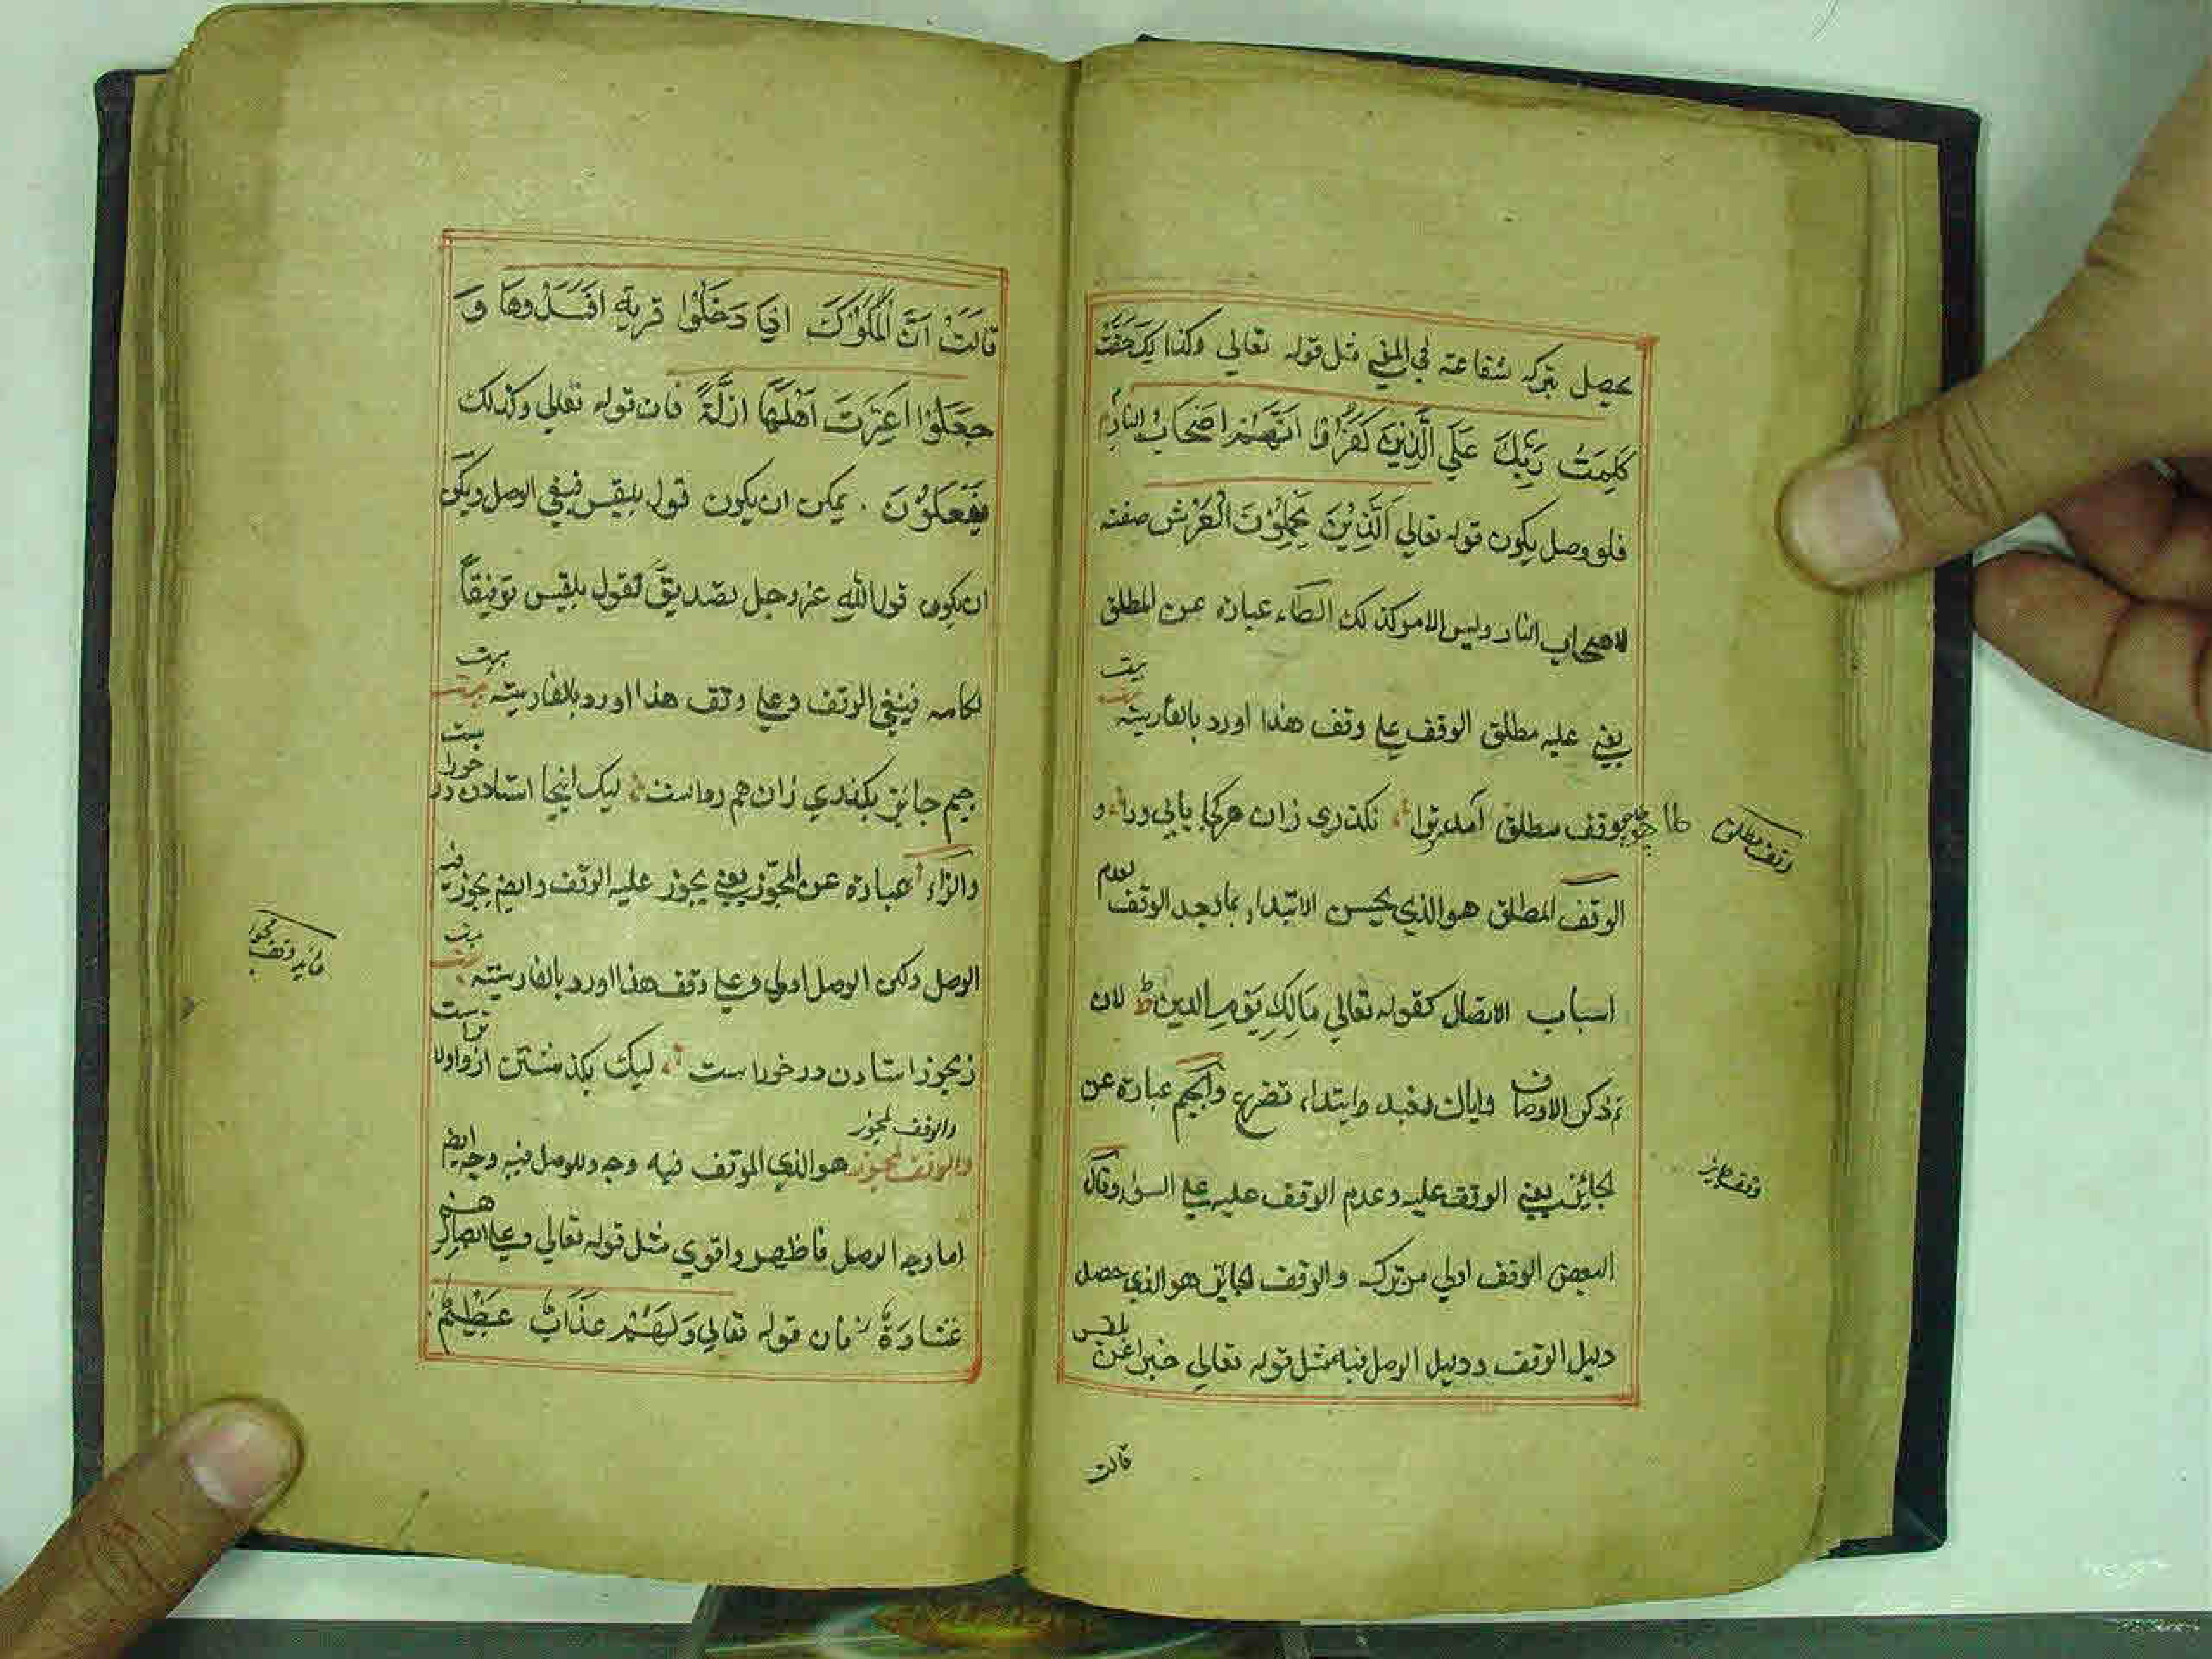 يحصل بتركه شفاعته في المعني مثل قوله تعالي وكذلك حقت
كلمت ربك علي الذين كفروا انهم اصحاب النار م
فلو وصل يكون قوله تعالي الذين يحملون العرش صفته
لاصحاب النار وليس الامر كذلك الطاء عبارة عن المطلق
يعني عليه مطلق الوقف علي وقف هذا اورد بالفارسيته
بيت
بوقف مطلق آمد توا نكذري زان هركجا يابي ورا و
طا
وقف مطلق
الوقف المطلق هو الذي يحسن الابتدا بما بعد الوقف لعدم
اسباب الاتصال كقوله تعالي مالك يوم الدين ط لان
ذكر الاوصاف واياك نعبد وابتداء تضرع والجيم عبارة عن
الجائز يعني الوقف عليه وعدم الوقف عليه علي السواء وقال
وقف جايز
البعض الوقف اولي من تركه والوقف الجائز هو الذي حصل
دليل الوقف ودليل الوصل فيه مثل قوله تعالي خبرا عن بلقيس
قالت
قالت ان الملوك اذا دخلوا قرية افسدوها و
جعلوا اعزت اهلها اذلة فان قوله تعالي وكذلك
يفعلون . يمكن ان يكون قول بلقيس فينبغي الوصل ويمكن
ان يكون قول الله عز وجل تصديق لقول بلقيس توفيقاً
لكلامه فينبغي الوقف وعلي وقف هذا اورد بالفارسيته
بيت
جيم جايز بكذري زان هم رواست ليك اينجا استادن در خوراست
والزاء عبارة عن المجوز يعني يجوز عليه الوقف وايض يجوز فيه
الوصل ولكن الوصل اولي وعلي وقف هذا اورد بالفارسيته
بيت
زيجوز استادن در خوراست ليك بكذشتن ازو اولا تراست
والوقف المجوز
والوقف المجوز هو الذي الموقف فيه وجه وللوصل فيه وجه ايض
اما وجه الوصل فاظهر واقوي مثل قوله تعالي وعلي ابصارهم
غشاوة ز فان قوله تعالي ولهم عذاب عظيم